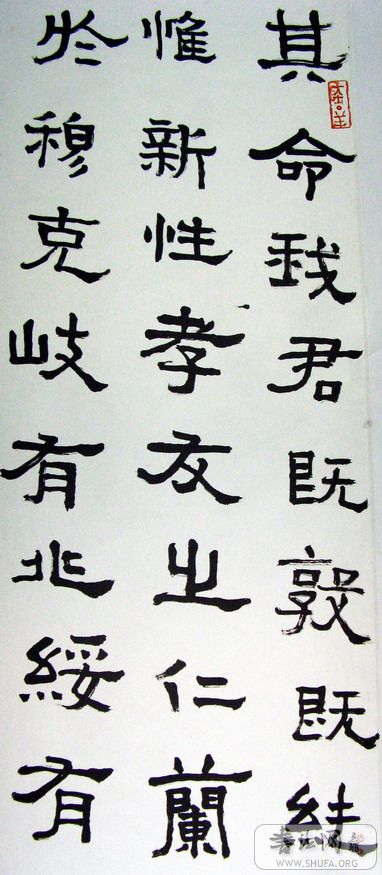 其命我君既敦既純
惟新性孝友之仁蘭
於穆克岐有兆綏有
大吉羊
WWW.SHUFA.ORG